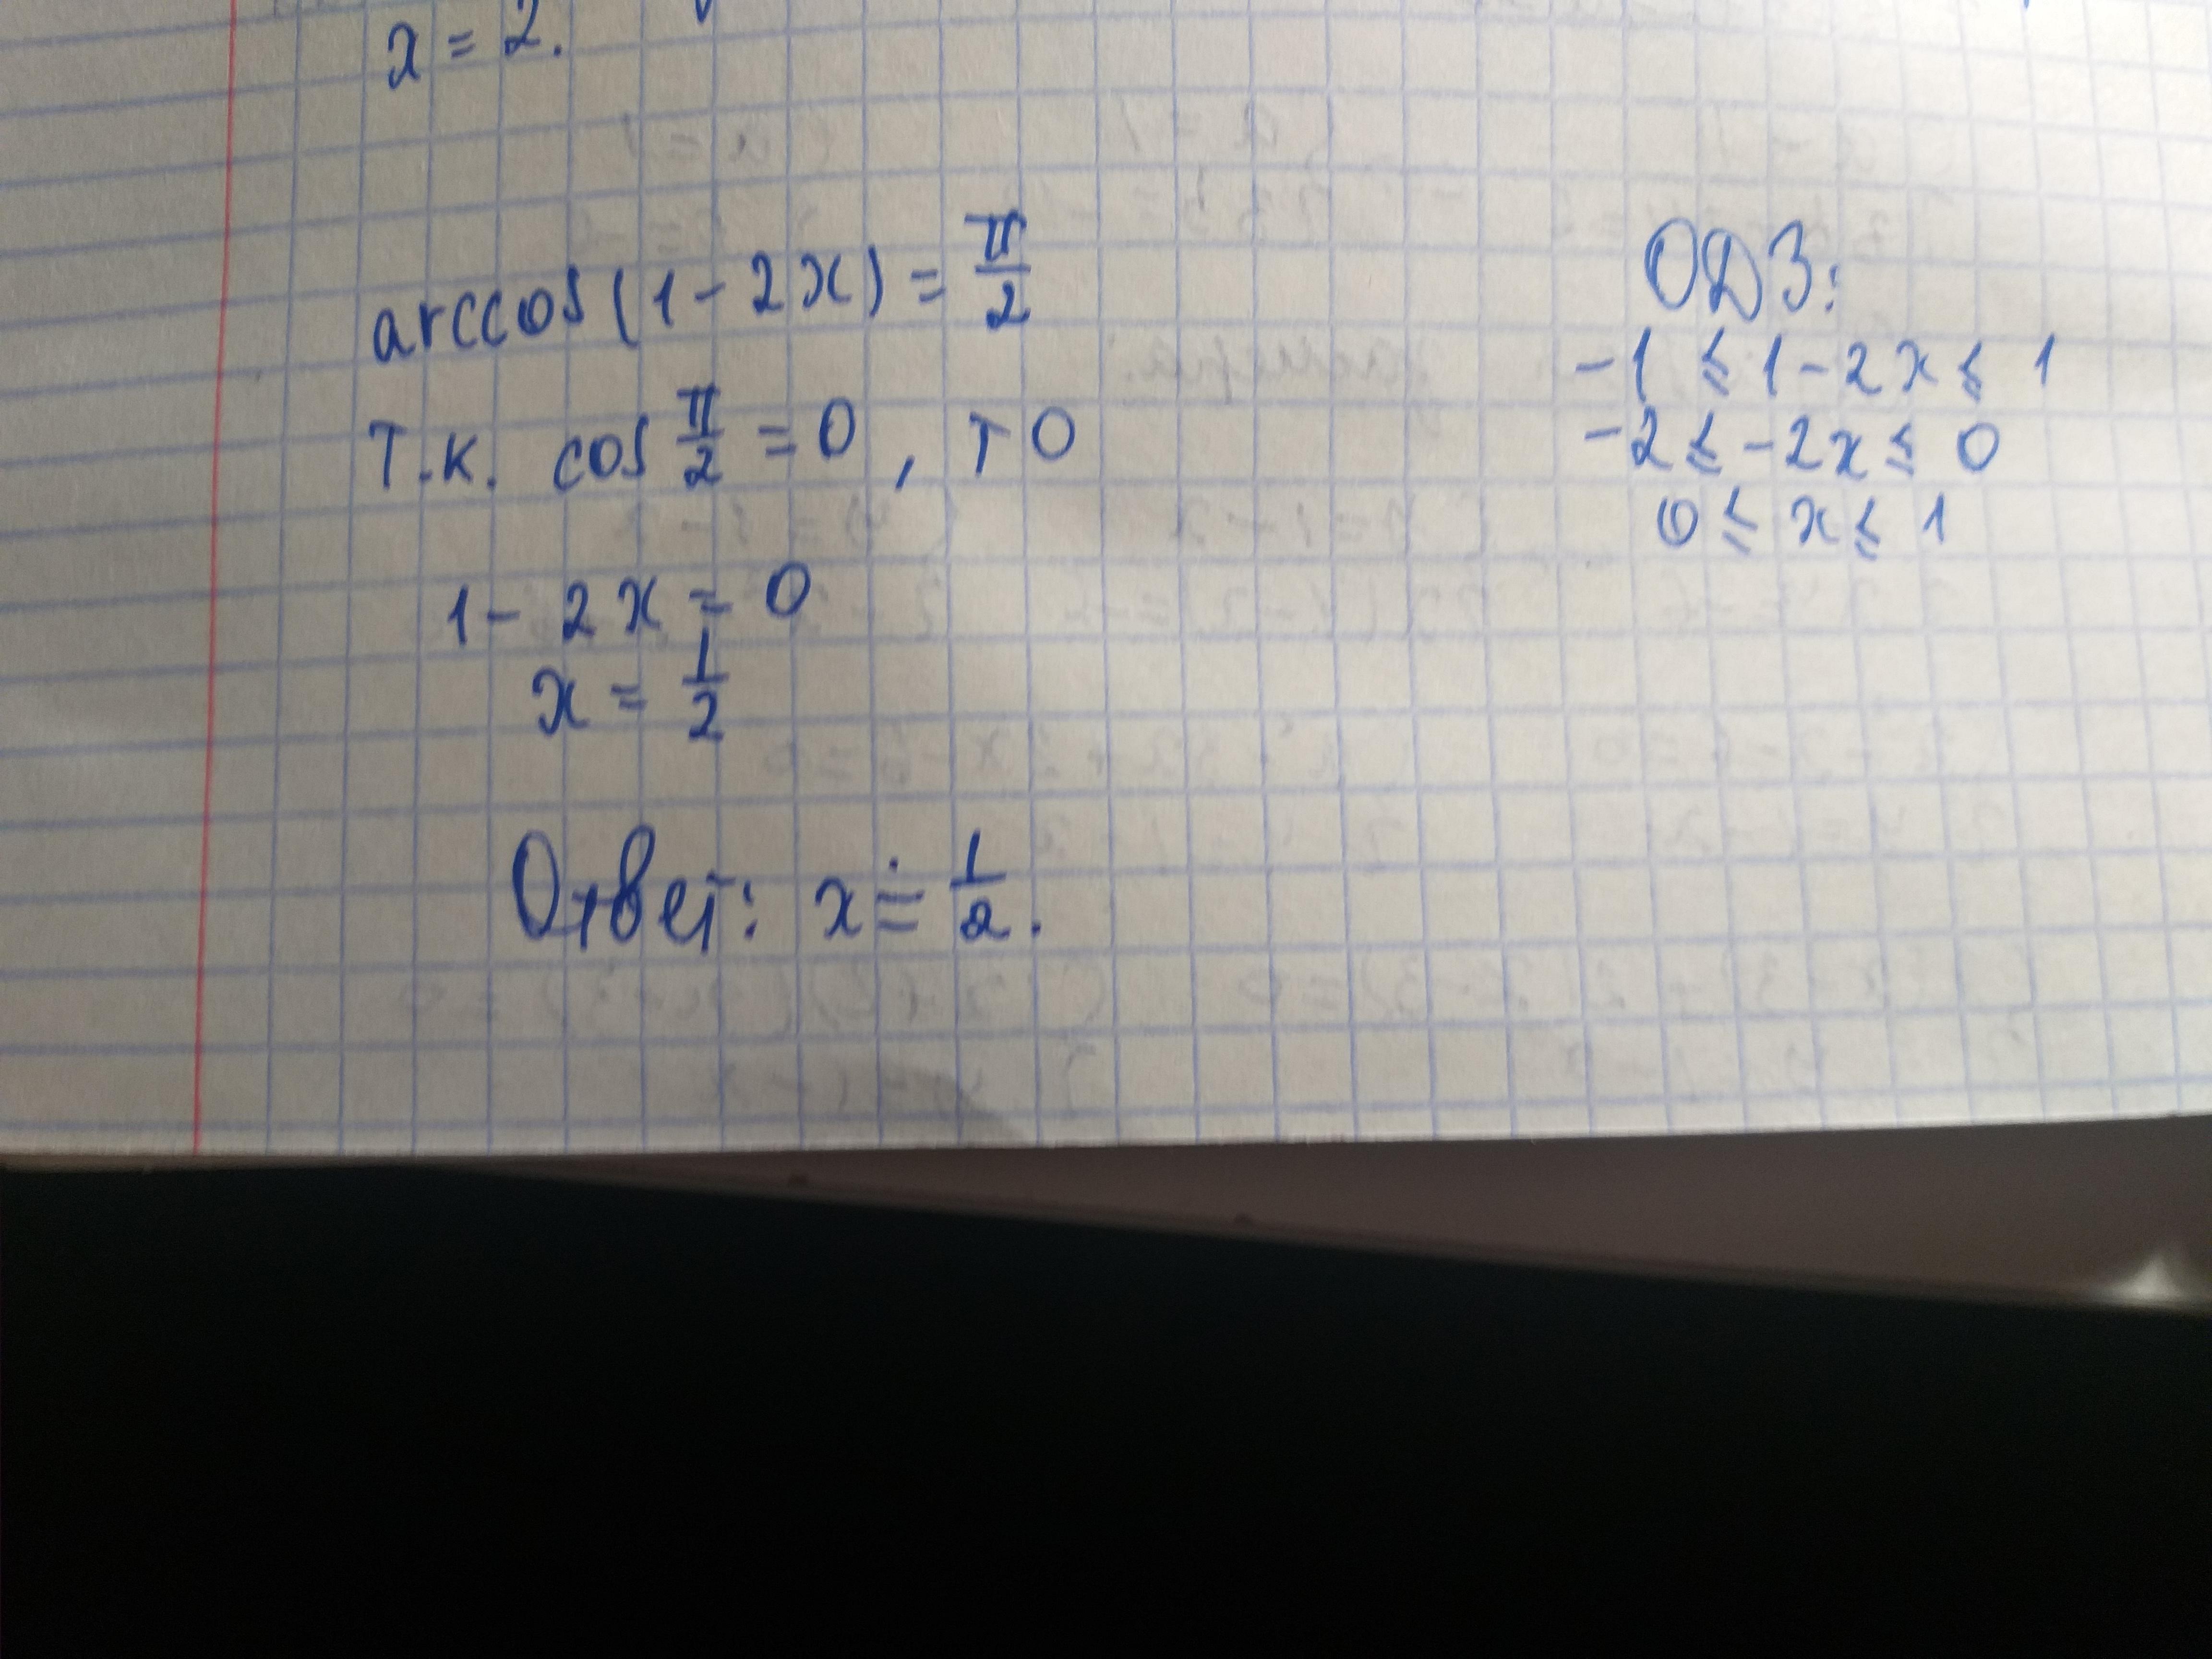 x = 2.
arccos(1 - 2x) = π/2
т.к. cos π/2 = 0, то
1 - 2x = 0
x = 1/2
Ответ: x = 1/2.
ОДЗ:
-1 ≤ 1 - 2x ≤ 1
-2 ≤ -2x ≤ 0
0 ≤ x ≤ 1